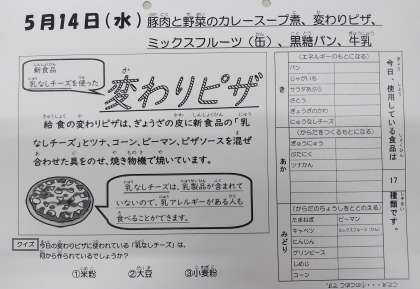 5月14日(水) 豚肉と野菜のカレースープ煮、変わりピザ、
ミックスフルーツ(缶)、黒糖パン、牛乳
新食品
乳なしチーズを使った
変わりピザ
給食の変わりピザは、ぎょうざの皮に新食品の「乳
なしチーズ」とツナ、コーン、ピーマン、ピザソースを混ぜ
合わせた具をのせ、焼き物機で焼いています。
乳なしチーズは、乳製品が含まれて
いないので、乳アレルギーがある人も
食べることができます。
クイズ
今日の変わりピザに使われている「乳なしチーズ」は、
何から作られているでしょうか?
①米粉 ②大豆 ③小麦粉
今日、使用している食品は
17
種類です。
き
(エネルギーのもとになる)
パン
じゃがいも
サラダあぶら
さとう
ぎょうざのかわ
にゅうなしチーズ
あか
(からだをつくるもとになる)
ぎゅうにゅう
ぶたにく
ツナかん
みどり
(からだのちょうしをととのえる)
たまねぎ ピーマン
キャベツ ミックスフルーツ(かん)
にんじん
グリンピース
しめじ
コーン